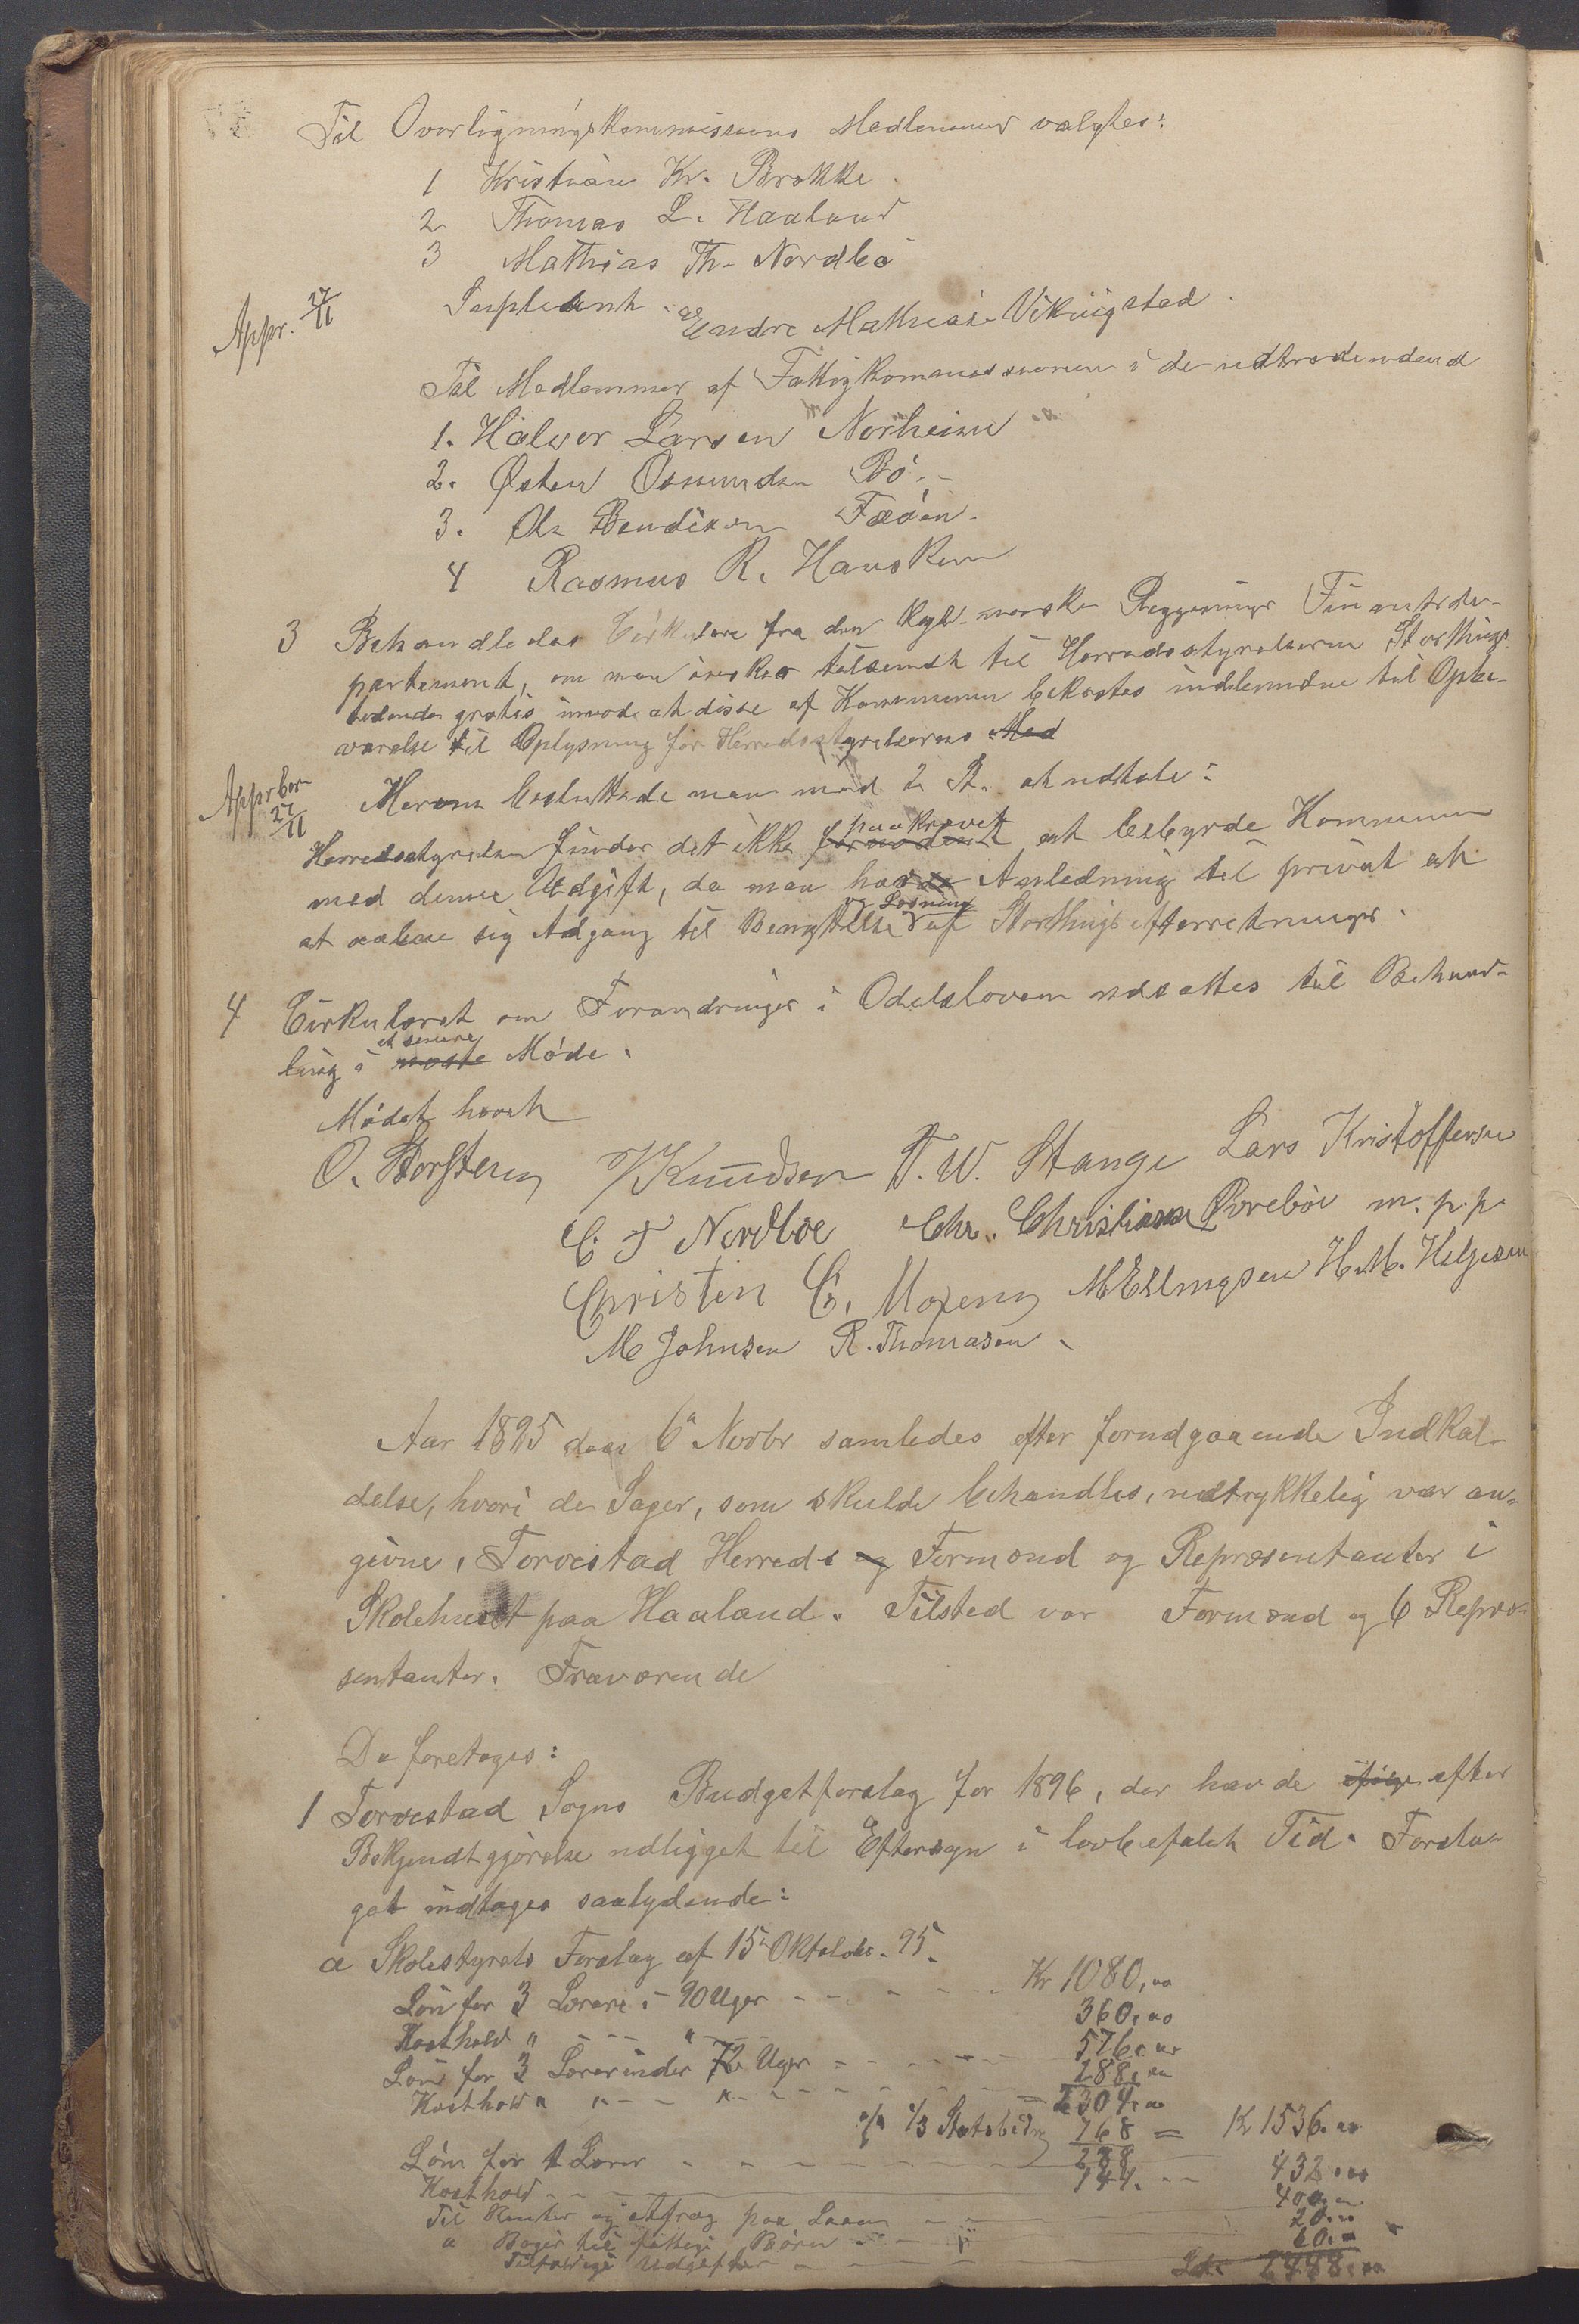 Til Overligningskommissions Medlemmer valgtes:
1 Kristian Kr. Brekke
2 Thomas L. Haaland
3 Mathias Th. Nordbö
Supleant
Endre Mathias. Vikingstad.
Appr. 27/11
Til Medlemmer af Fattigkommissionen i de udtrædendes
1. Halvor Larsen Norheim
2. Østen Osmundsen Bö.
3. Ole Bendiksen Fæöen.
4 Rasmus R. Hausken
3 Behandledes Cirkulære fra den Kgl. norske Regjerings Finantsde-
partement, om man önsker tilsendt til Herredsstyrelserne Storthings-
tidende gratis imod at disse af Kommunen bekostes indbundne til Opbe-
varelse til Oplysning for Herredsstyrelsernes Med
Herom besluttede man med 2 St. at udtale:
Apprber 27/11
Herredsstyrelsen finder det ikke fornödent paakrævet at bebyrde Kommunen
med denne Udgift, da man havde Anledning til privat at
at aabne sig Adgang til Benyttelse og Læsning af Storthingsefterretninger.
4 Cirkulæret om Forandringer i Odelsloven udsattes til Behand-
ling i næste et senere Möde.
Mödet hævet
O. Torstensen V Knudsen T. W. Stange Lars Kristoffersen
C. T Nordböe Chr. Christiansen Öreböe m. p. p.
Christen C. M. Ellingsen H. M. Helgesen
M Johnsen R. Thomasen
Aar 1895 den 6' Novbr samledes efter forudgaaende Indkal-
delse, hvori de Sager, som skulde behandles, udtrykkelig var an-
givne, Torvestad Herreds og Formænd og Repræsentanter i
Skolehuset paa Haaland. Tilsted var Formænd og 6 Repræ-
sentanter. Fraværende
Da foretoges:
1 Torvestad Sogns Budgetforslag for 1896, der havde ifölge efter
Bekjendtgjörelse udligget til Eftersyn i lovbefalet Tid. Forsla-
get indtages saalydende:
a Skolestyrets Forslag af 15' Oktober. 95.
Lön for 3 Lærere i 90 Uger - - - - Kr 1080,00
Kosthold " - - - " - - 360,00
Lön for 3 Lærerinder 72 Uger - - - - 576,00
Kosthold " " - - " - - - 288,00
2304,00
1/3 Statsbidr 768 = Kr 1536.00
Lön for 1 Lærer - - - - 288
Kosthold - - 144. -- 432,00
Til Renter og Afdrag paa Laan - - 400,00
" Böger til fattige Börn - - 20,00
Tilfældige Udgifter - - 60,00
2448,00